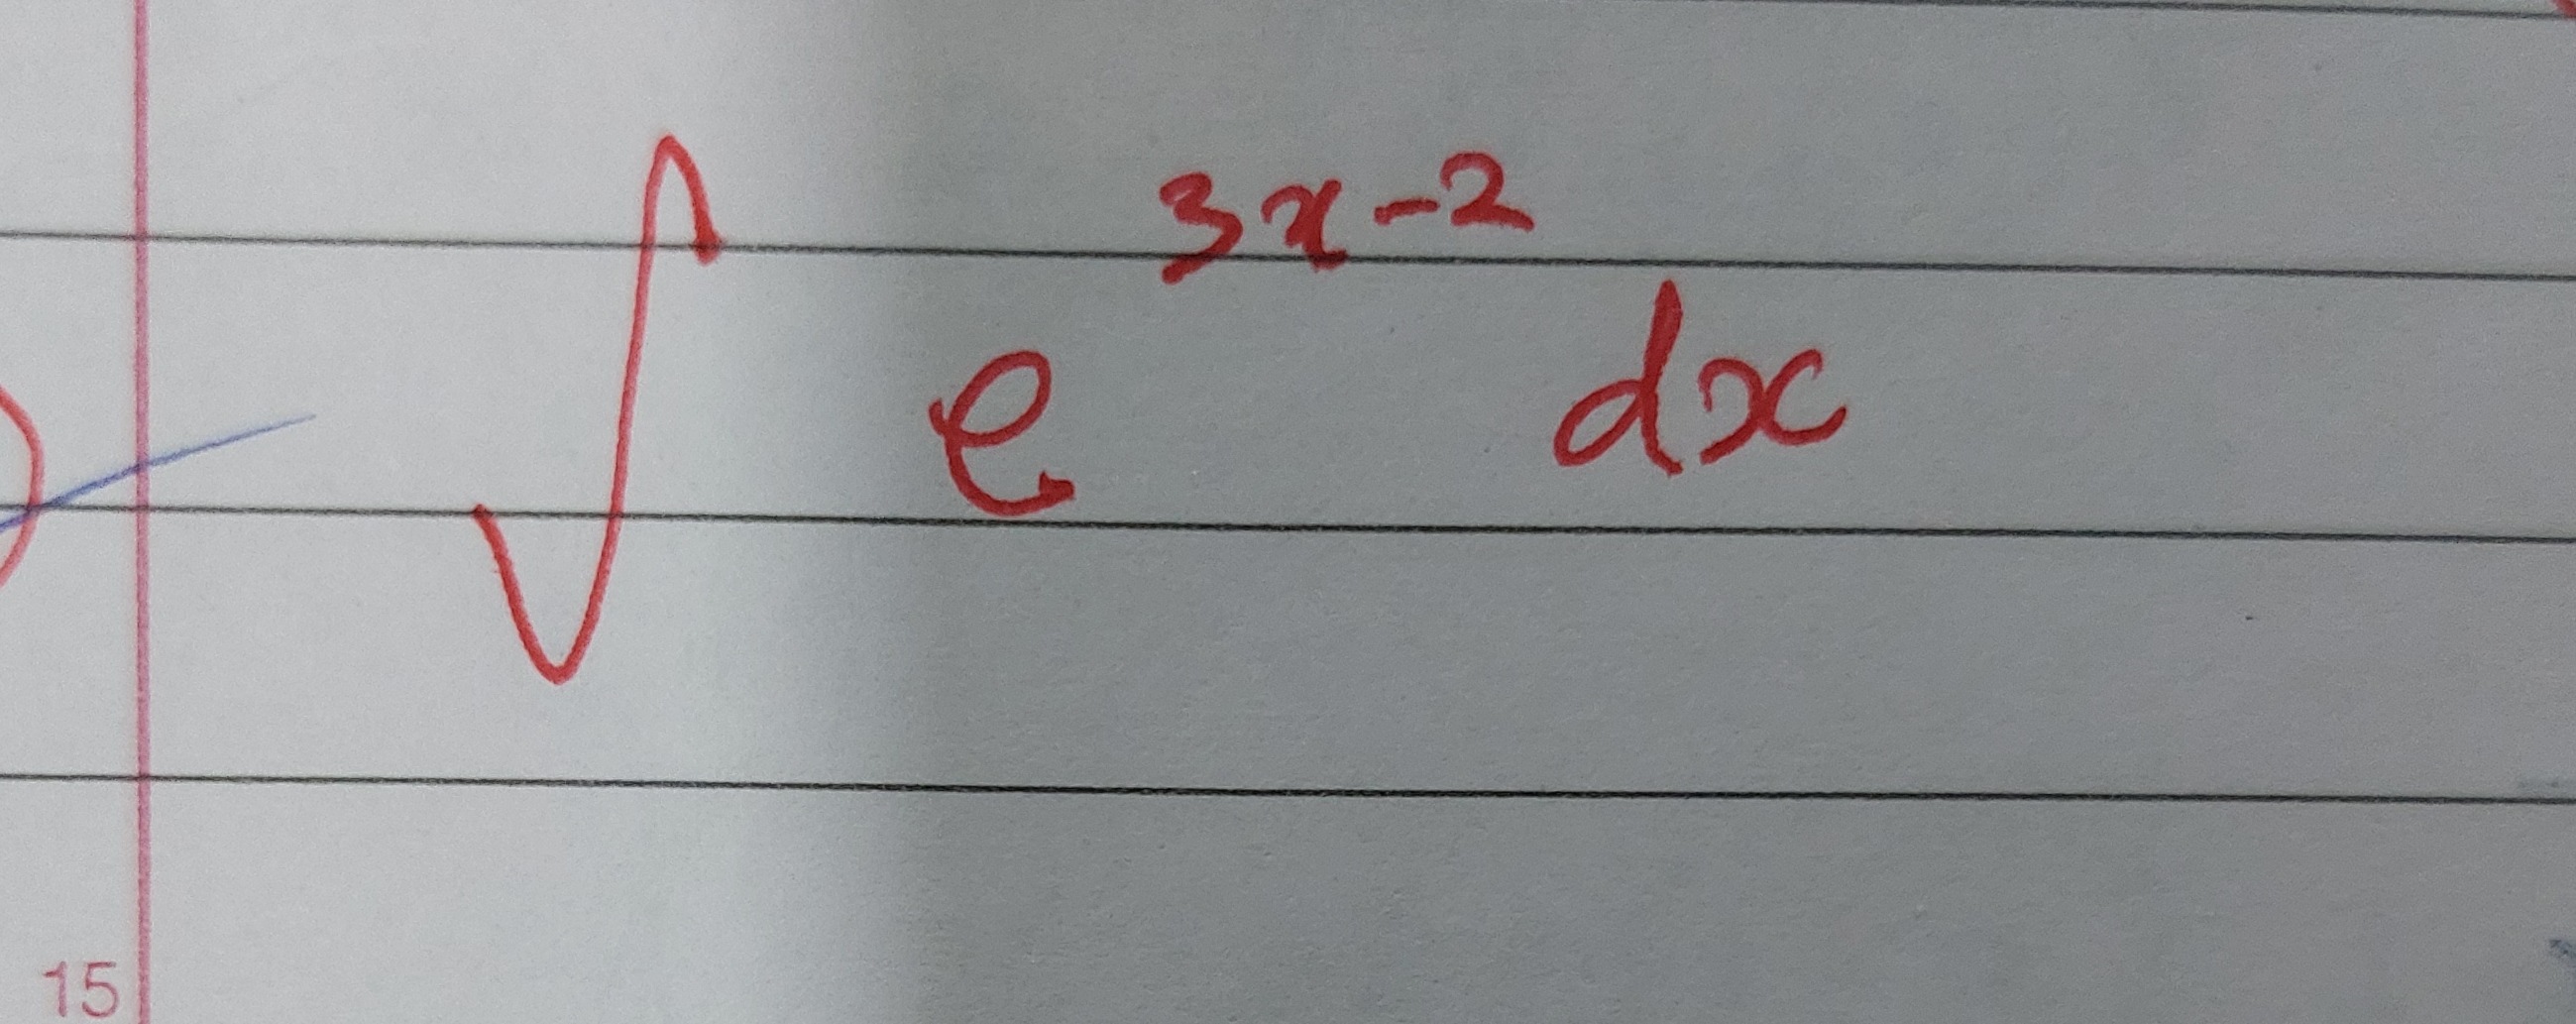 ∫ e^{3x-2} dx
15